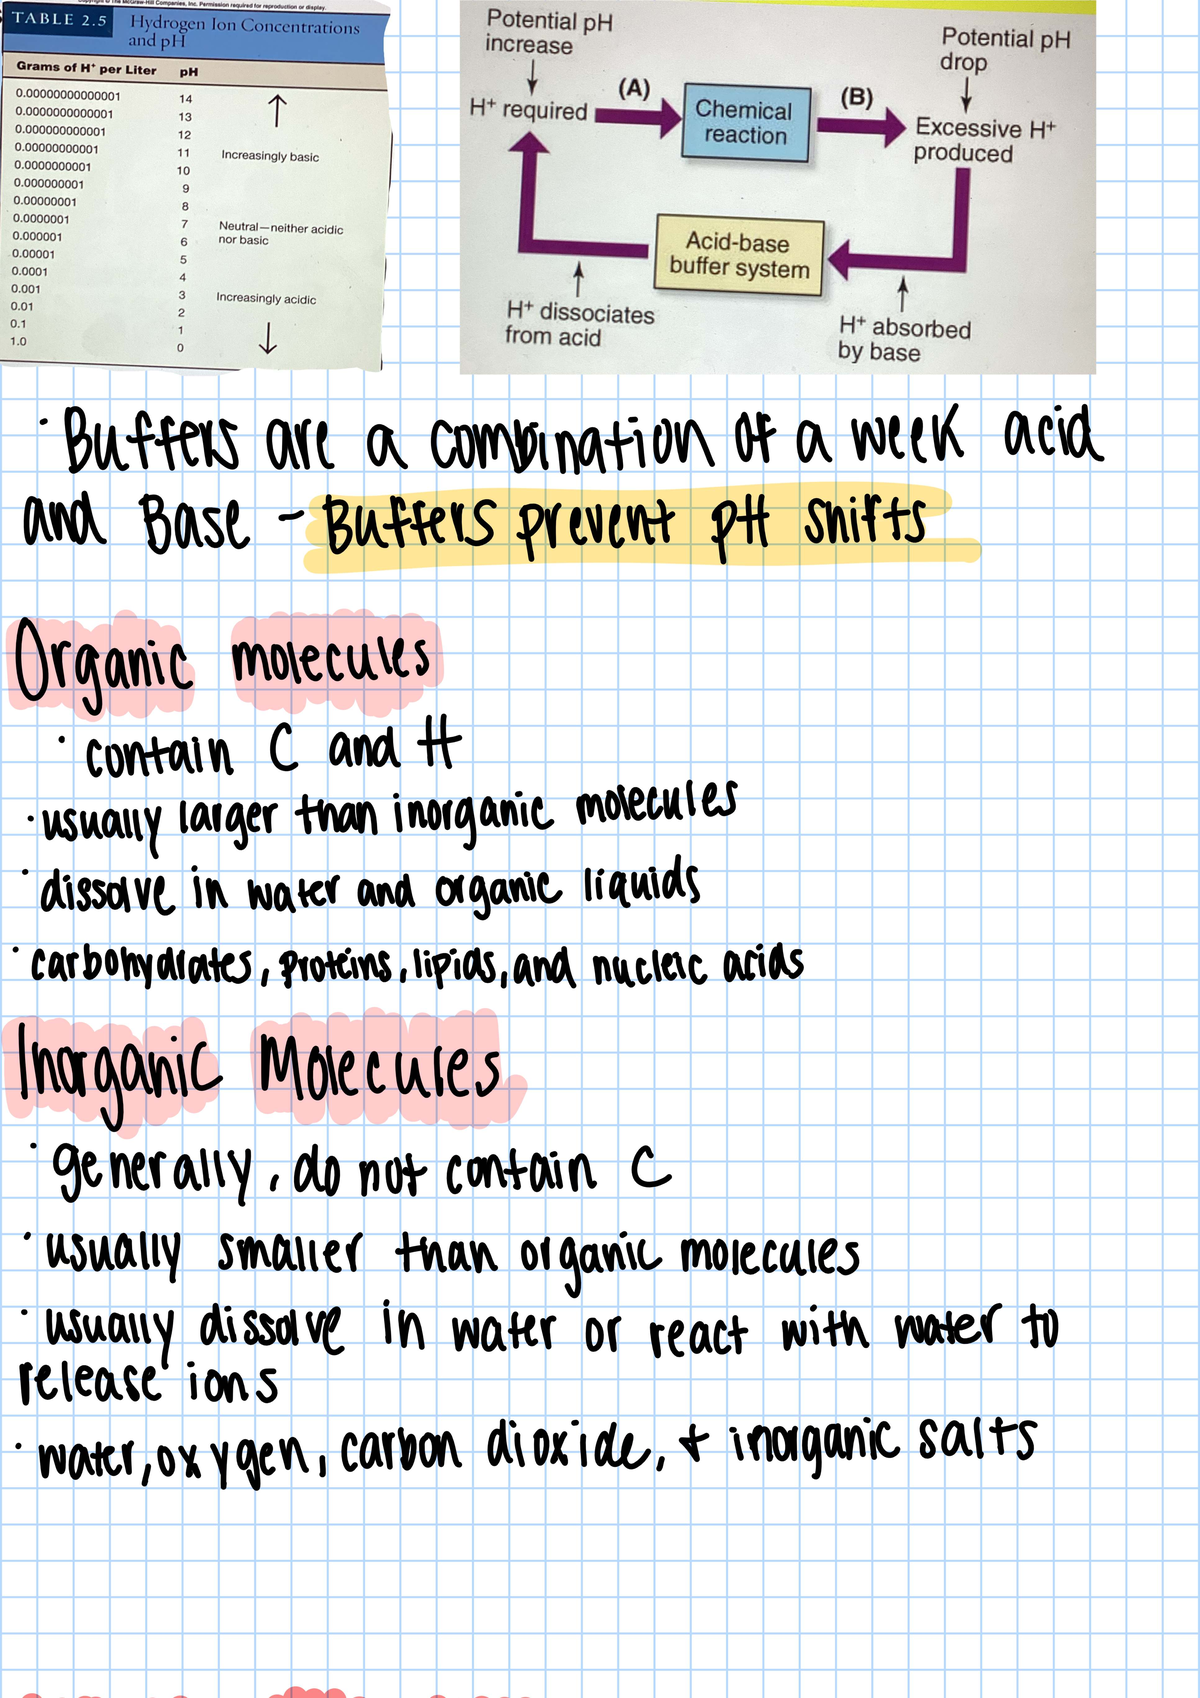 Copyright © The McGraw-Hill Companies, Inc. Permission required for reproduction or display.
TABLE 2.5 Hydrogen Ion Concentrations
and pH
Grams of H⁺ per Liter pH
0.00000000000001 14
0.0000000000001 13
0.000000000001 12
0.00000000001 11 Increasingly basic
0.0000000001 10
0.000000001 9
0.00000001 8
0.0000001 7 Neutral—neither acidic
nor basic
0.000001 6
0.00001 5
0.0001 4
0.001 3 Increasingly acidic
0.01 2
0.1 1
1.0 0
Potential pH
increase
H⁺ required
(A)
Chemical
reaction
(B)
Potential pH
drop
Excessive H⁺
produced
Acid-base
buffer system
H⁺ dissociates
from acid
H⁺ absorbed
by base
· Buffers are a combination of a week acid
and Base - Buffers prevent pH shifts
Organic molecules
· contain C and H
· usually larger than inorganic molecules
· dissolve in water and organic liquids
· carbohydrates, proteins, lipids, and nucleic acids
Inorganic Molecules
· generally, do not contain C
· usually smaller than organic molecules
· usually dissolve in water or react with water to
release ions
· water, oxygen, carbon dioxide, + inorganic salts